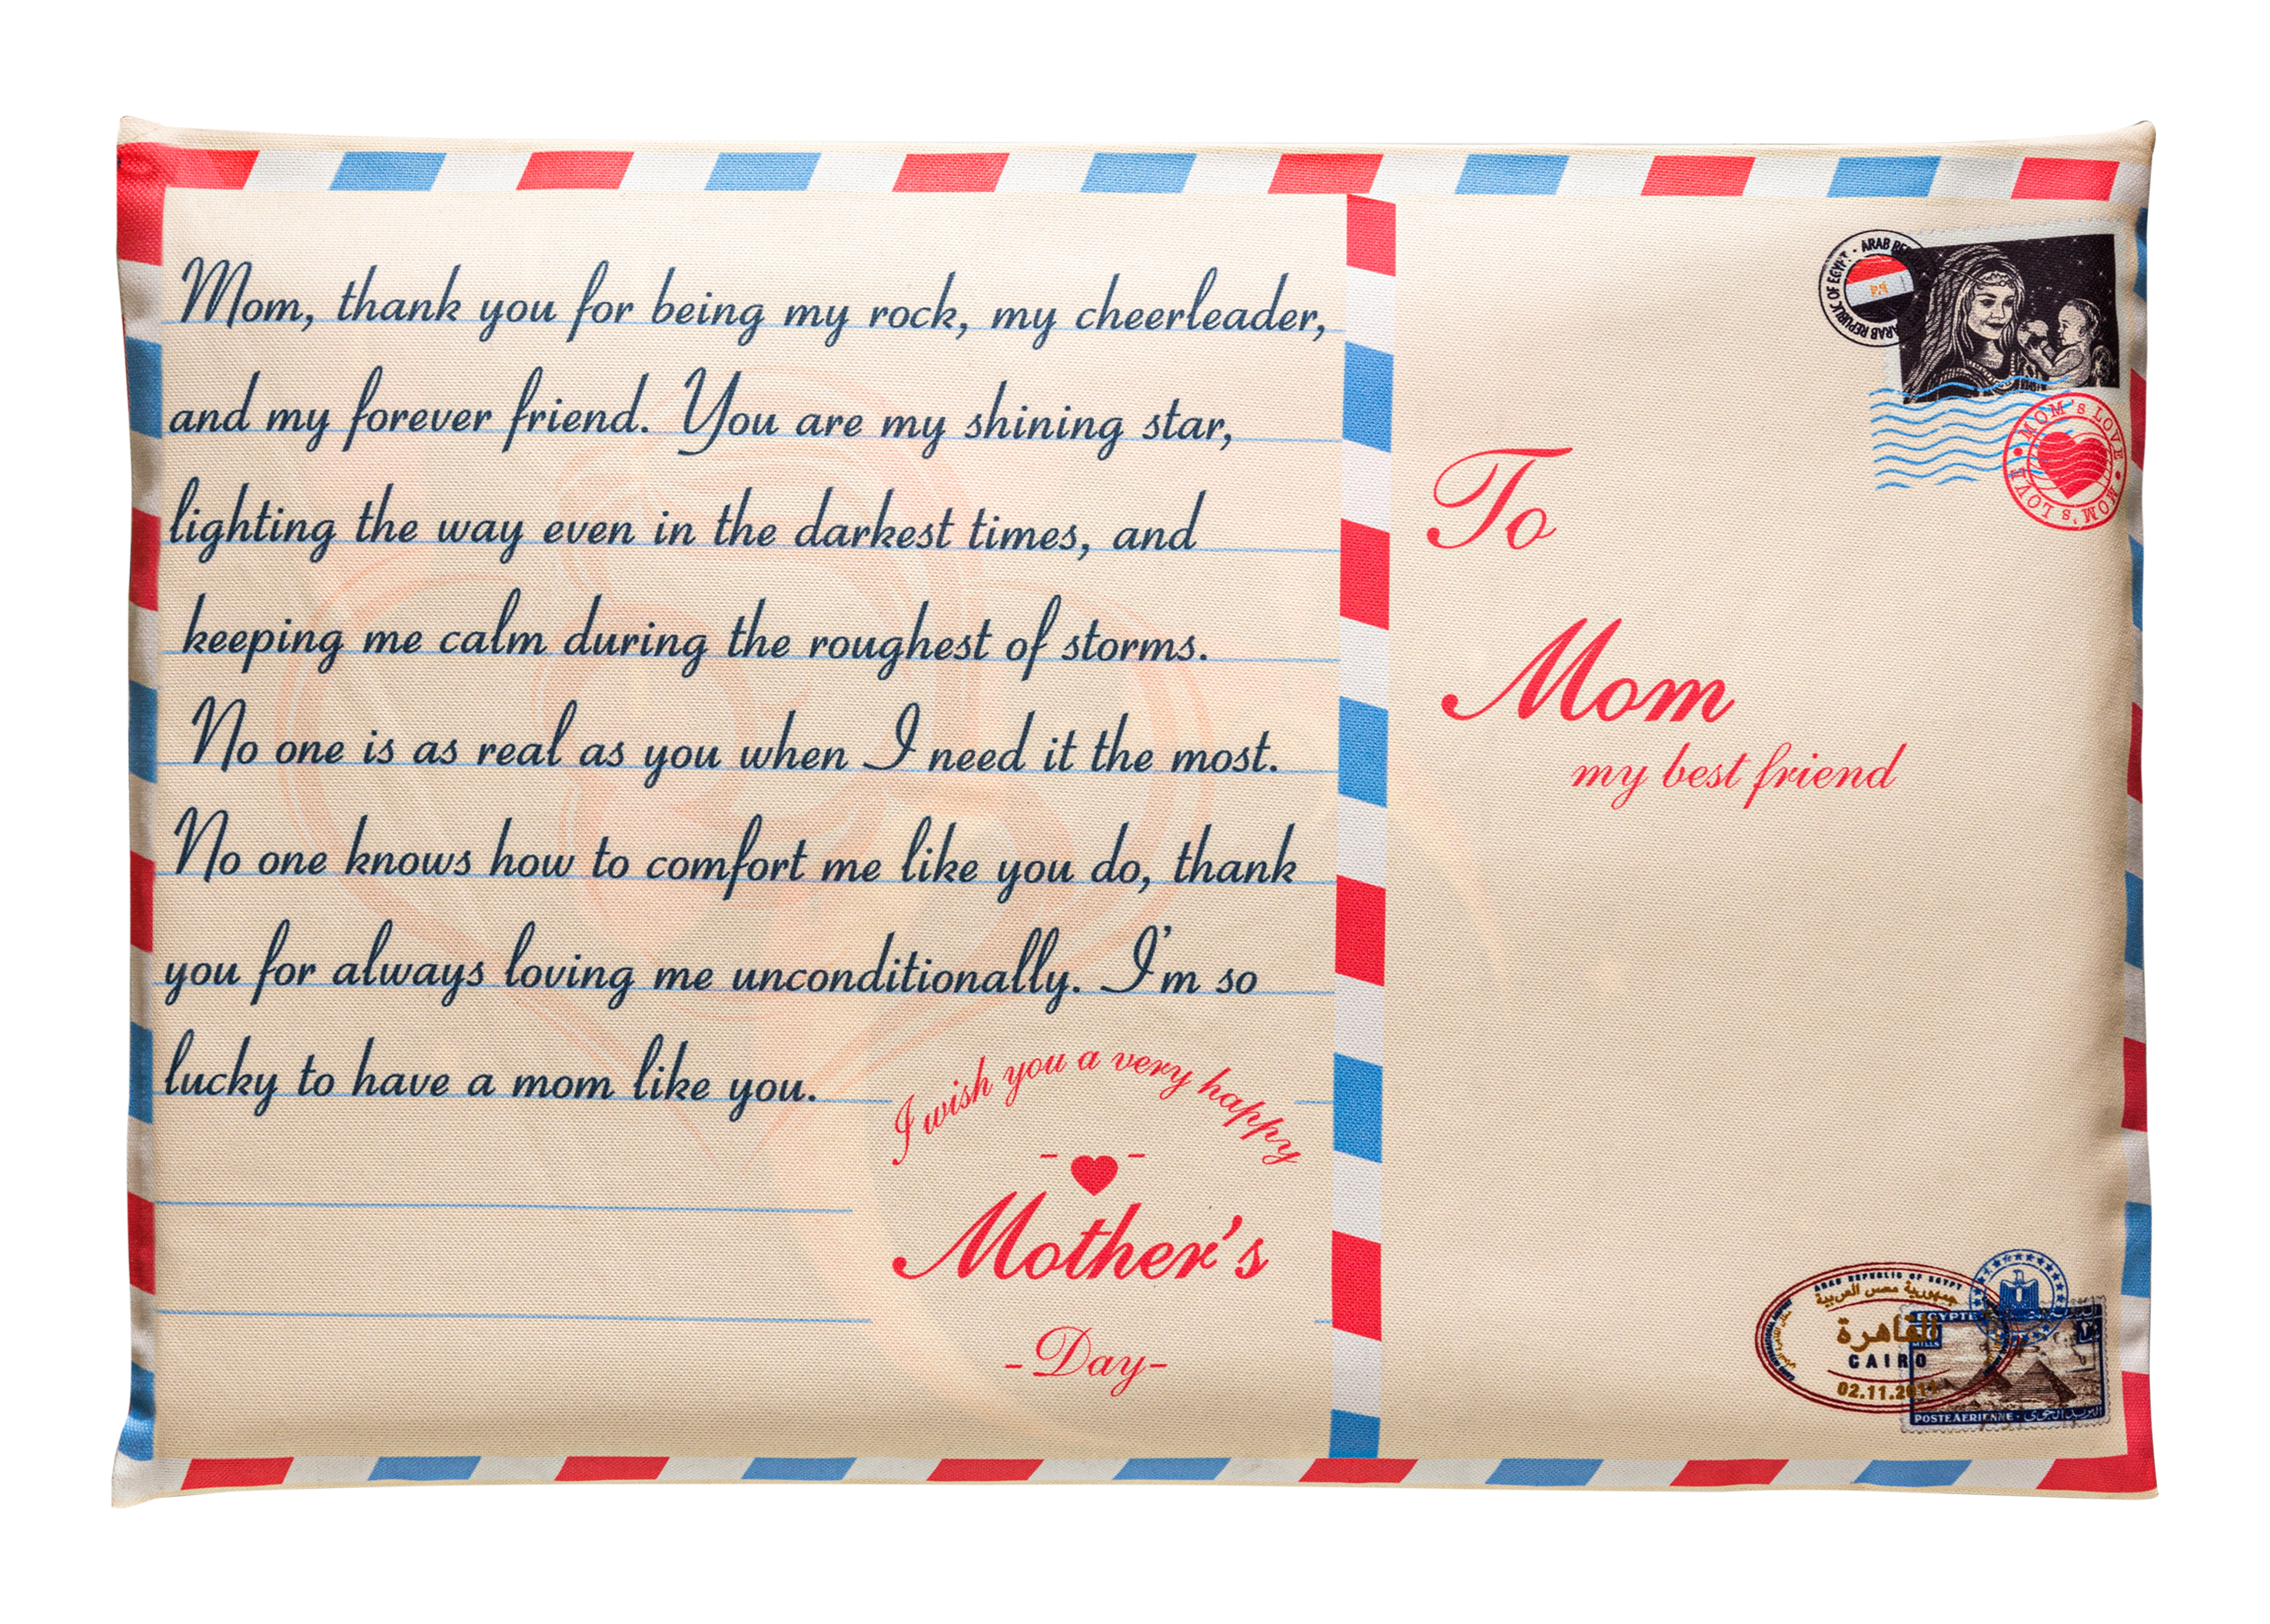 Mom, thank you for being my rock, my cheerleader,
and my forever friend. You are my shining star,
lighting the way even in the darkest times, and
keeping me calm during the roughest of storms.
No one is as real as you when I need it the most.
No one knows how to comfort me like you do, thank
you for always loving me unconditionally. I'm so
lucky to have a mom like you.
I wish you a very happy
Mother's
-Day-
ARAB REPUBLIC OF EGYPT
MOM'S LOVE • MOM'S LOVE
To
Mom
my best friend
ARAB REPUBLIC OF EGYPT
جمهورية مصر العربية
القاهرة
CAIRO
02.11.2014
EGYPTE
MILLS
POSTE AERIENNE - البريد الجوى